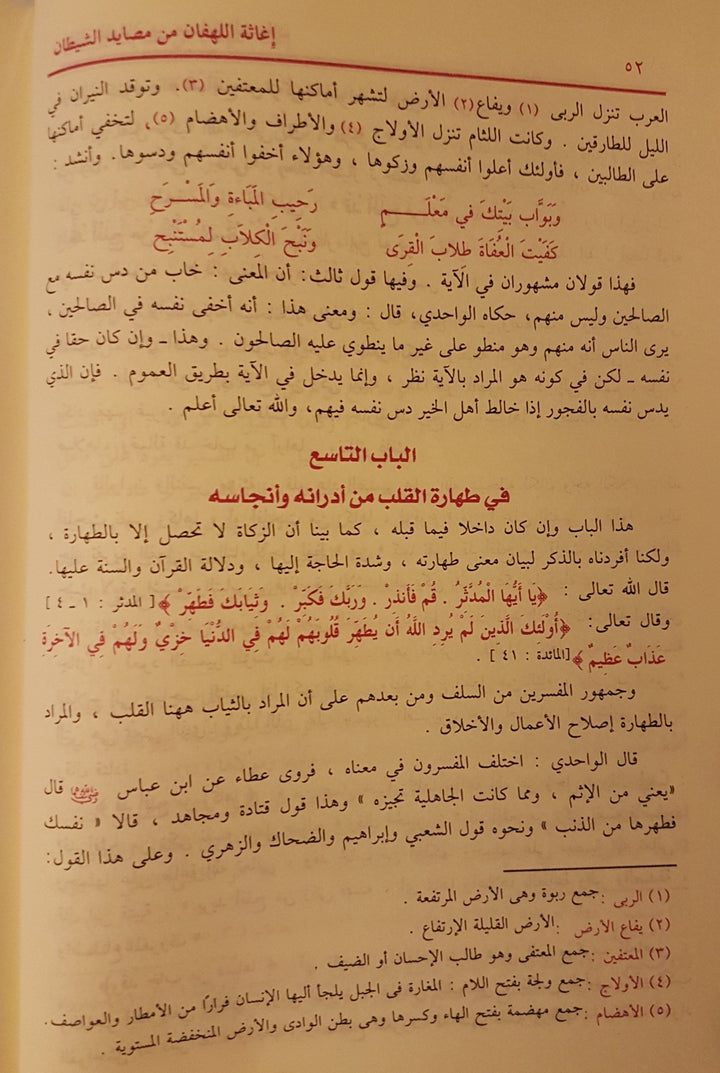 إغاثة اللهفان من مصايد الشيطان
٥٢
العرب تنزل الربى (١) ويفاع(٢) الأرض لتشهر أماكنها للمعتفين (٣). وتوقد النيران في
الليل للطارقين . وكانت اللئام تنزل الأولاج (٤) والأطراف والأهضام (٥)، لتخفي أماكنها
على الطالبين ، فأولئك أعلوا أنفسهم وزكوها ، وهؤلاء أخفوا أنفسهم ودسوها. وأنشد :
وَبَوَّاب بَيْتِكَ في مَعْلَـــــمٍ رَحِيبِ المَبَاءَةِ وَالمَسْـرَحِ
كَفَيْتَ الْعُفَاةَ طلابَ الْقِرَى وَنَبْحَ الْكِلاَبِ لِمُسْتَنْبِحِ
فهذا قولان مشهوران في الآية . وفيها قول ثالث: أن المعنى : خاب من دس نفسه مع
الصالحين وليس منهم، حكاه الواحدي، قال : ومعنى هذا : أنه أخفى نفسه في الصالحين ،
يرى الناس أنه منهم وهو منطو على غير ما ينطوي عليه الصالحون . وهذا ـ وإن كان حقا في
نفسه ـ لكن في كونه هو المراد بالآية نظر ، وإنما يدخل في الآية بطريق العموم . فإن الذي
يدس نفسه بالفجور إذا خالط أهل الخير دس نفسه فيهم، والله تعالى أعلم .
الباب التاسع
في طهارة القلب من أدرانه وأنجاسه
هذا الباب وإن كان داخلا فيما قبله ، كما بينا أن الزكاة لا تحصل إلا بالطهارة ،
ولكنا أفردناه بالذكر لبيان معنى طهارته ، وشدة الحاجة إليها ، ودلالة القرآن والسنة عليها.
قال الله تعالى : ﴿يَا أَيُّهَا الْمُدَّثِّرُ . قُمْ فَأَنذرْ . وَرَبَّكَ فَكَبِّرْ . وَثِيَابَكَ فَطَهِّرْ ﴾[ المدثر : ١ ـ ٤ ]
وقال تعالى: ﴿أُوْلئكَ الَّذِينَ لَمْ يُرِدِ اللَّهُ أَن يُطَهِّرَ قُلُوبَهُمْ لَهُمْ فِي الدُّنْيَا خِزْيٌ وَلَهُمْ فِي الآخِرَةِ
عَذَابٌ عَظِيمٌ ﴾[المائدة : ٤١ ] .
وجمهور المفسرين من السلف ومن بعدهم على أن المراد بالثياب ههنا القلب ، والمراد
بالطهارة إصلاح الأعمال والأخلاق .
قال الواحدي : اختلف المفسرون في معناه ، فروى عطاء عن ابن عباس رضي الله عنهما قال
«يعني من الإثم ، ومما كانت الجاهلية تجيزه » وهذا قول قتادة ومجاهد ، قالا « نفسك
فطهرها من الذنب » ونحوه قول الشعبي وإبراهيم والضحاك والزهري . وعلى هذا القول:
(١) الربى :جمع ربوة وهى الأرض المرتفعة .
(٢) يفاع الأرض :الأرض القليلة الإرتفاع .
(٣) المعتفين :جمع المعتفى وهو طالب الإحسان أو الضيف .
(٤) الأولاج: جمع ولجة بفتح اللام : المغارة فى الجبل يلجأ أليها الإنسان فرارًا من الأمطار والعواصف.
(٥) الأهضام: جمع مهضمة بفتح الهاء وكسرها وهى بطن الوادى والأرض المنخفضة المستوية .